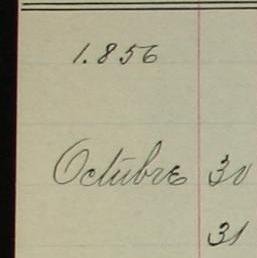 1.856
Octubre 30
31